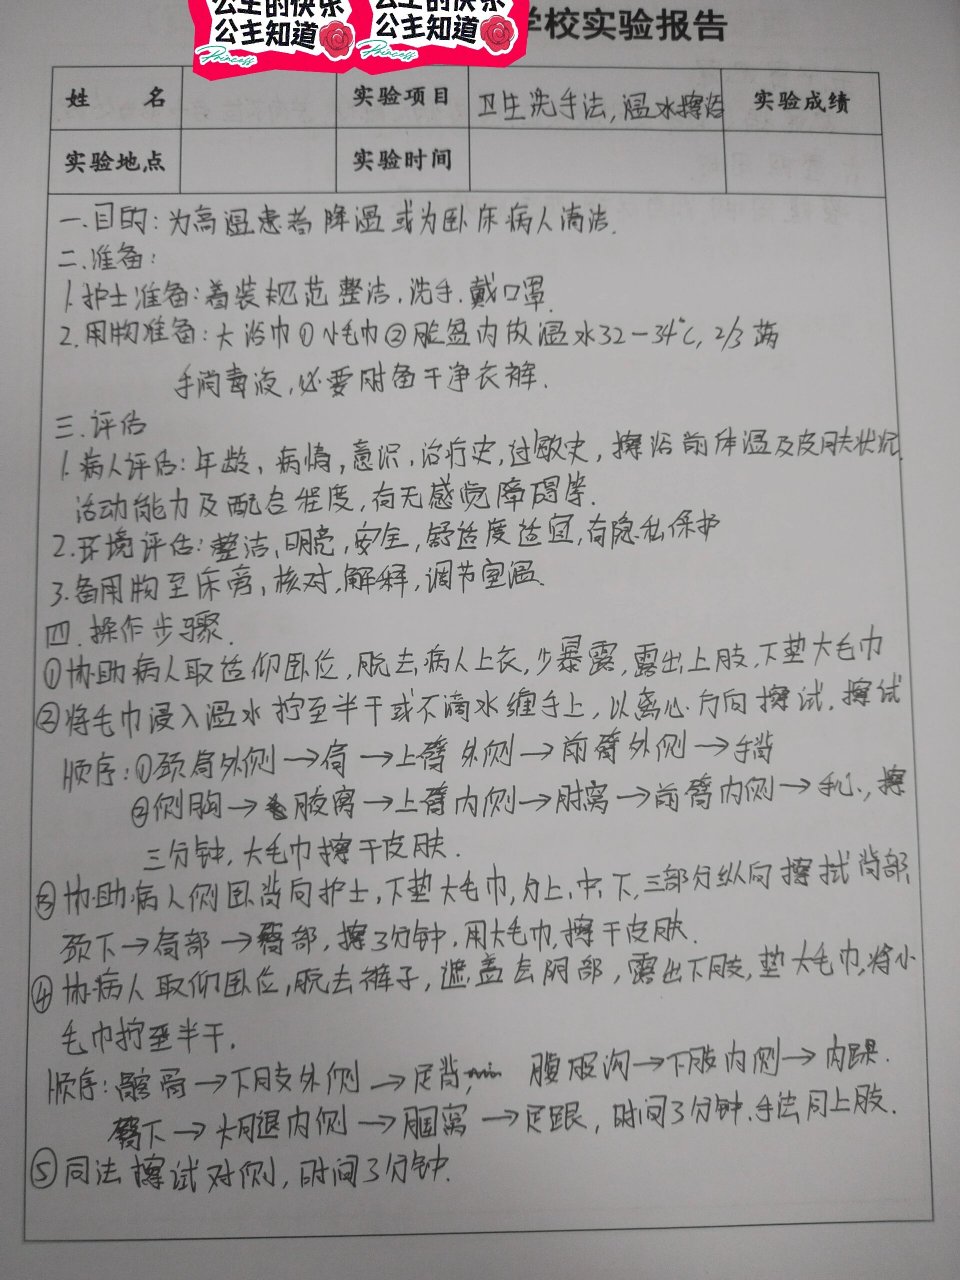 公主的快乐 公主的快乐
公主知道 公主知道
Princess Princess
学校实验报告
姓 名 实验项目 卫生洗手法,温水擦浴 实验成绩
实验地点 实验时间
一.目的:为高温患者降温或为卧床病人清洁.
二.准备:
1.护士准备:着装规范整洁.洗手.戴口罩.
2.用物准备:大浴巾①小毛巾②脸盆内放温水32-34℃, 2/3 满
手消毒液,必要时备干净衣裤.
三.评估
1.病人评估:年龄,病情,意识,治疗史,过敏史,擦浴前体温及皮肤状况
活动能力及配合程度,有无感觉障碍等.
2.环境评估:整洁,明亮,安全,舒适度适宜,有隐私保护
3.备用物至床旁,核对,解释,调节室温.
四.操作步骤.
①协助病人取适仰卧位,脱去病人上衣,少暴露,露出上肢,下垫大毛巾
②将毛巾浸入温水拧至半干或不滴水缠手上,以离心方向擦试.擦试
顺序:①颈肩外侧→肩→上臂外侧→前臂外侧→手背
②侧胸→腋窝→上臂内侧→肘窝→前臂内侧→手心,擦
三分钟,大毛巾擦干皮肤.
③协助病人侧卧背向护士,下垫大毛巾,分上.中.下.三部分纵向擦拭背部,
颈下→肩部→臀部,擦3分钟.用大毛巾,擦干皮肤.
④协病人取仰卧位,脱去裤子,遮盖会阴部,露出下肢,垫大毛巾,将小
毛巾拧至半干.
顺序:髂骨→下肢外侧→足背, 腹股沟→下肢内侧→内踝.
臀下→大腿内侧→腘窝→足跟,时间3分钟.手法同上肢.
⑤同法擦试对侧,时间3分钟.